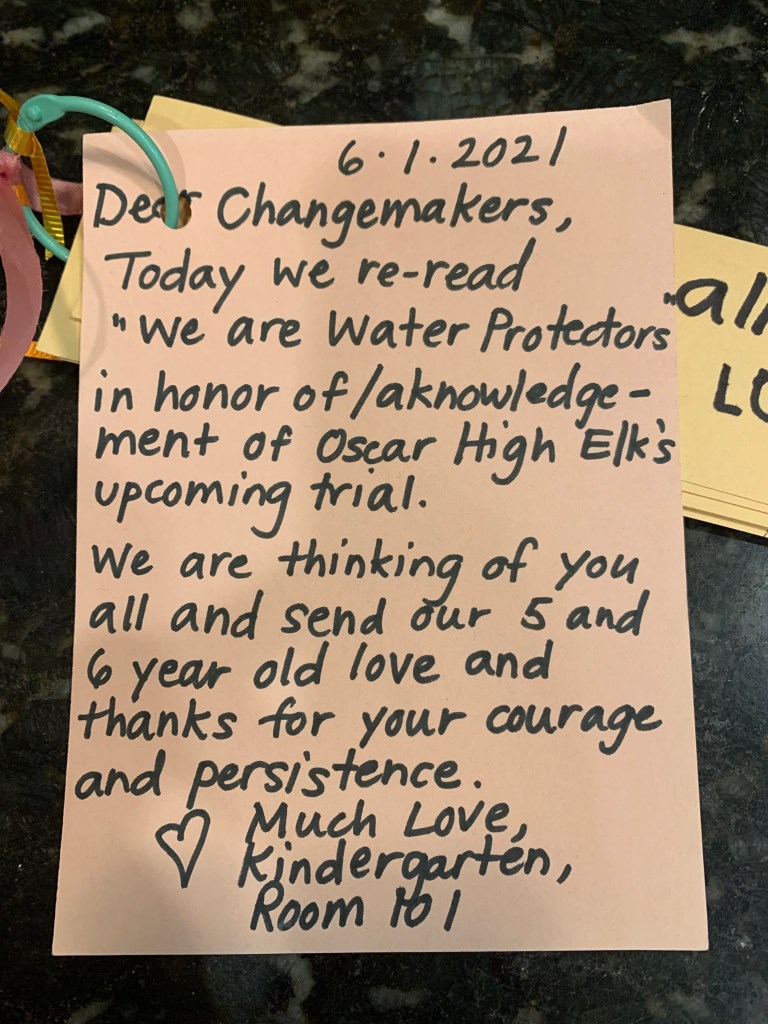 6.1.2021
Dear Changemakers,
Today we re-read
"We are Water Protectors
in honor of/aknowledge-
ment of Oscar High Elk's
upcoming trial.
We are thinking of you
all and send our 5 and
6 year old love and
thanks for your courage
and persistence.
♡ Much Love,
Kindergarten,
Room 101